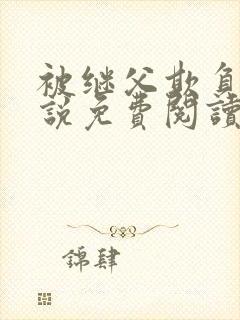 被继父欺负
說免費閱讀
錦肆